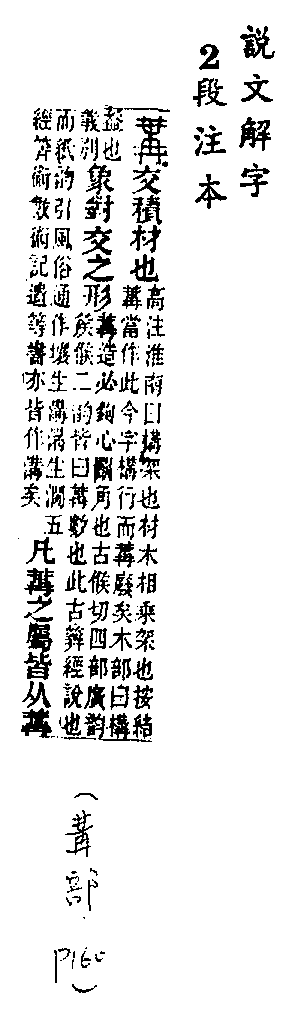 說文解字
2段注本
冓交積材也高注淮南曰構架也材木相乘架也按結
冓當作此今字構行而冓廢矣木部曰構
葢也
義別
象對交之形冓造必鉤心鬬角也古候切四部廣韵
矦候二韵皆曰冓數也此古筭經說也
而紙韵引風俗通作壤生溝溝生澗五
經筭術數術記遺等書亦皆作溝矣
凡冓之屬皆从冓
(冓部.
P160)